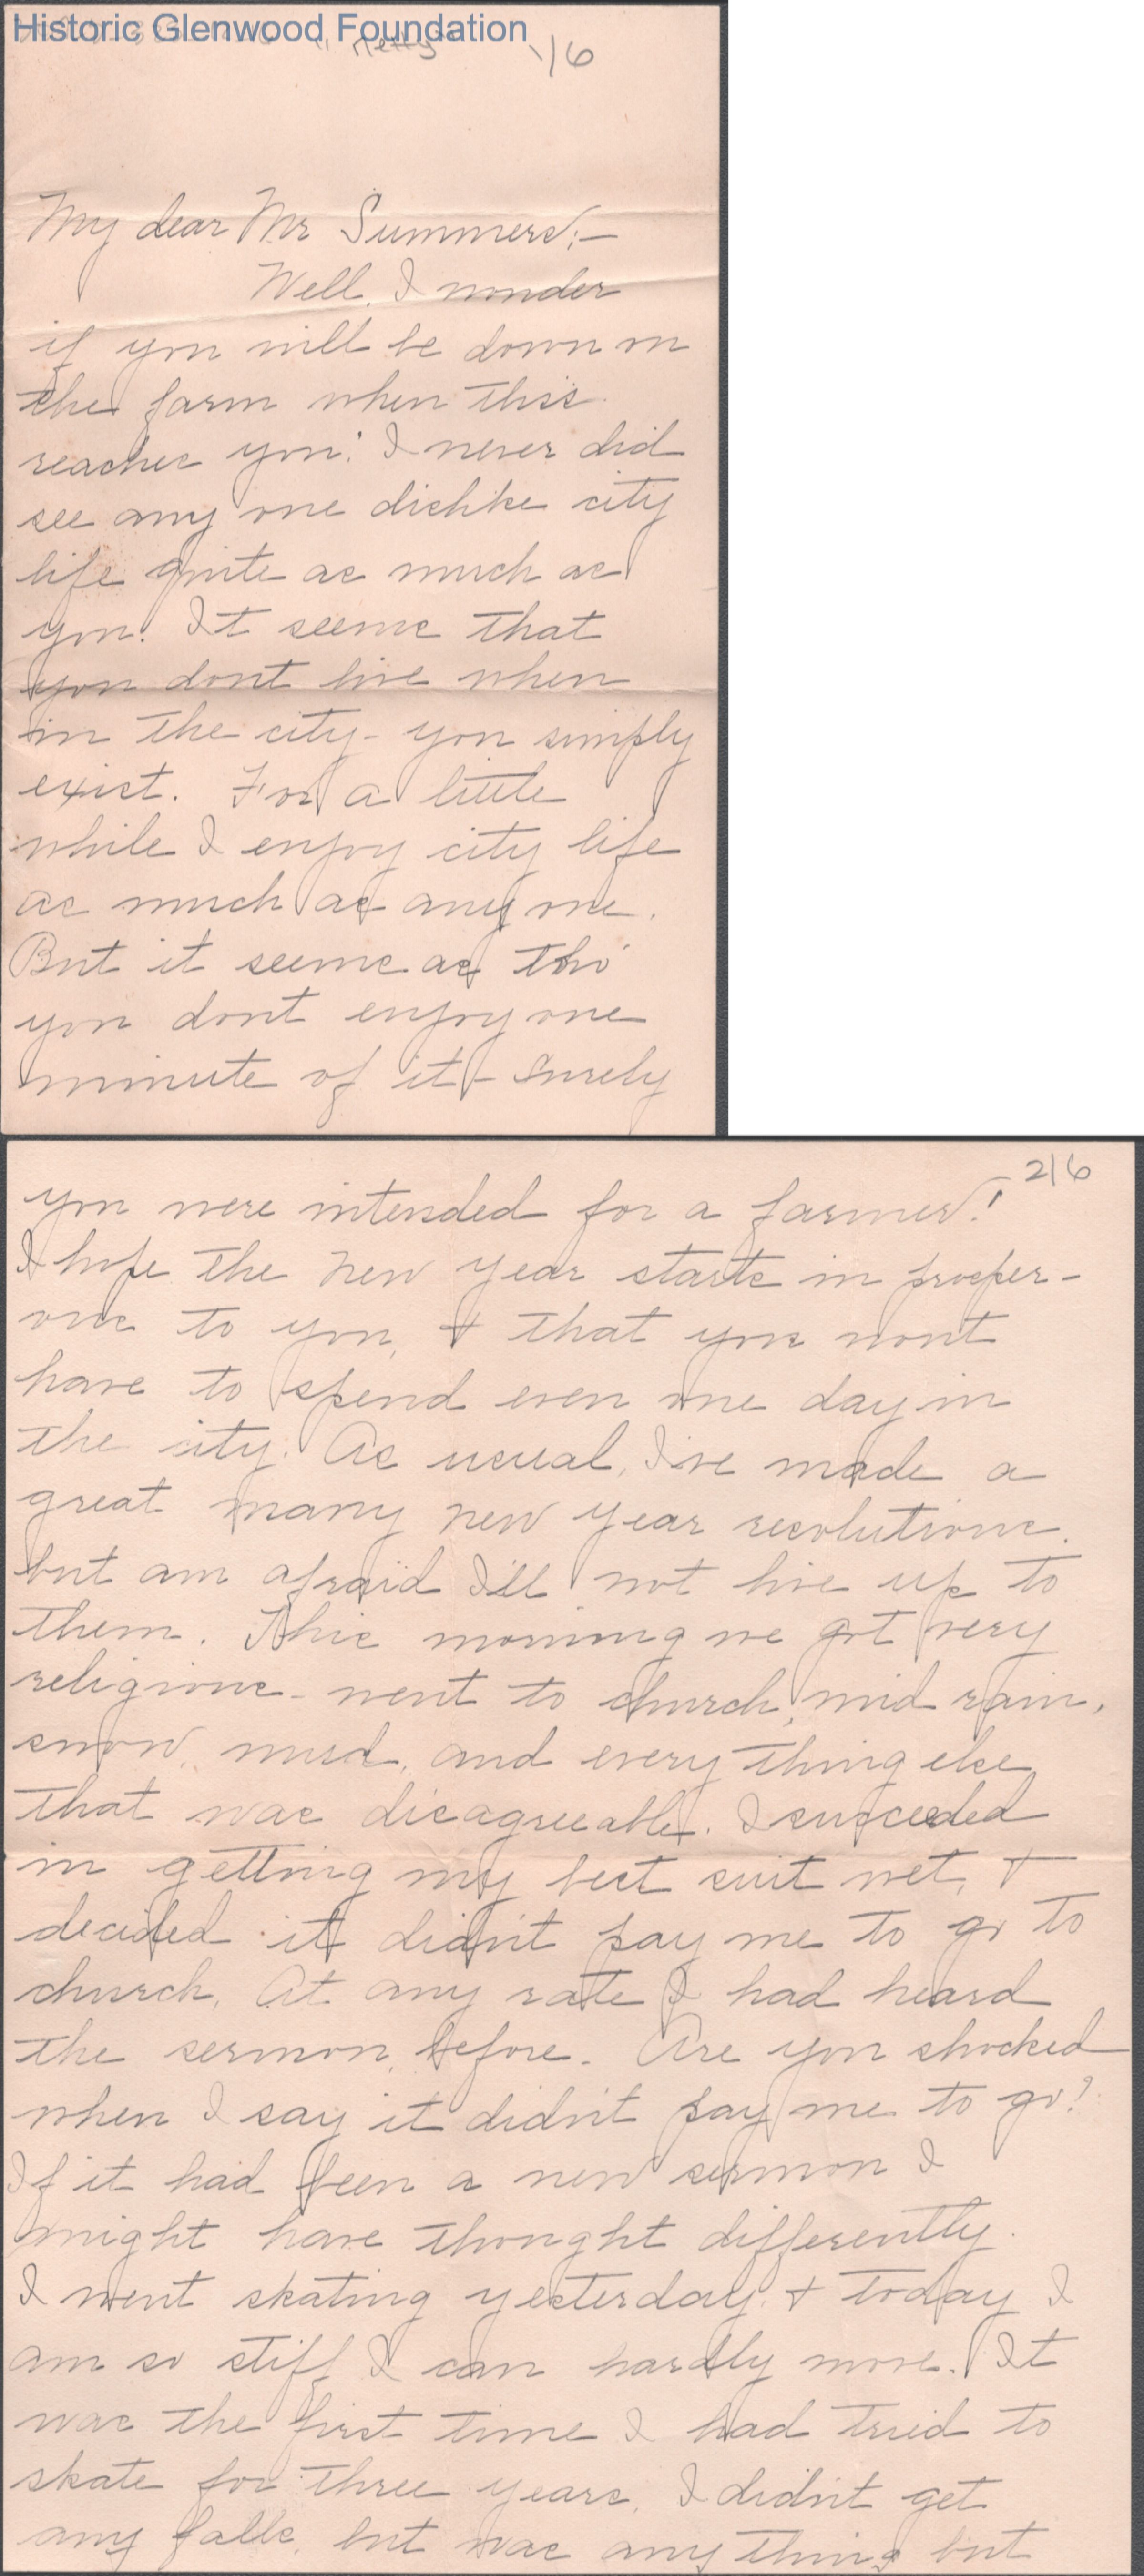 Historic Glenwood Foundation
"Netty" 1/6
My dear Mr Summers;—
Well, I wonder
if you will be down on
the farm when this
reaches you! I never did
see any one dislike city
life quite as much as
you. It seems that
you dont live when
in the city - you simply
exist. For a little
while I enjoy city life
as much as any one.
But it seems as tho'
you dont enjoy one
minute of it - surely
2/6
you were intended for a farmer!
I hope the new year starts in prosper-
ous to you, & that you wont
have to spend even one day in
the city. As usual, I've made a
great many new year resolutions.
but am afraid I'll not live up to
them. This morning we got very
religious - went to church, mid rain,
snow, mud, and every thing else
that was disagreeable. I succeeded
in getting my best suit wet, &
decided it didn't pay me to go to
church. At any rate I had heard
the sermon before. Are you shocked
when I say it didn't pay me to go?
If it had been a new sermon I
might have thought differently.
I went skating yesterday & today I
am so stiff I can hardly move. It
was the first time I had tried to
skate for three years. I didn't get
any falls, but was any thing but